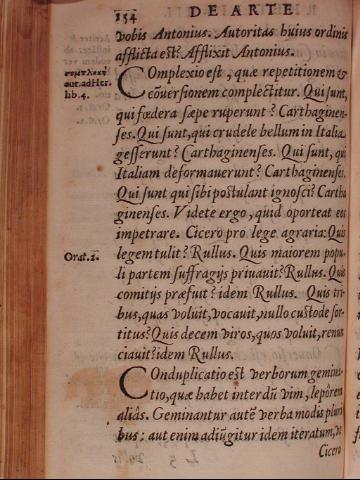 154 DE ARTE
vobis Antonius. Autoritas huius ordinis
afflicta est? Afflixit Antonius.
Complexio est, quæ repetitionem &
cōuersionem complectitur. Qui sunt,
qui fœdera sæpe ruperunt? Carthaginen-
ses. Qui sunt, qui crudele bellum in Italia
gesserunt? Carthaginenses. Qui sunt, qui
Italiam deformauerunt? Carthaginenses.
Qui sunt qui sibi postulant ignosci? Cartha
ginenses. Videte ergo, quid oporteat eos
impetrare. Cicero pro lege agraria: Quis
legem tulit? Rullus. Quis maiorem popu-
li partem suffragijs priuauit? Rullus. Quis
comitijs præfuit? idem Rullus. Quis tri-
bus, quas voluit, vocauit, nullo custode sor-
titus? Quis decem viros, quos voluit, renun
ciauit? idem Rullus.
Conduplicatio est verborum gemina-
tio, quæ habet interdū vim, lepôrem
aliâs. Geminantur autē verba modis pluri
bus; aut enim adiūgitur idem iteratum, vt
Cicero
συμπλοκὴ
aut. ad Her.
lib. 4.
Orat. 2.